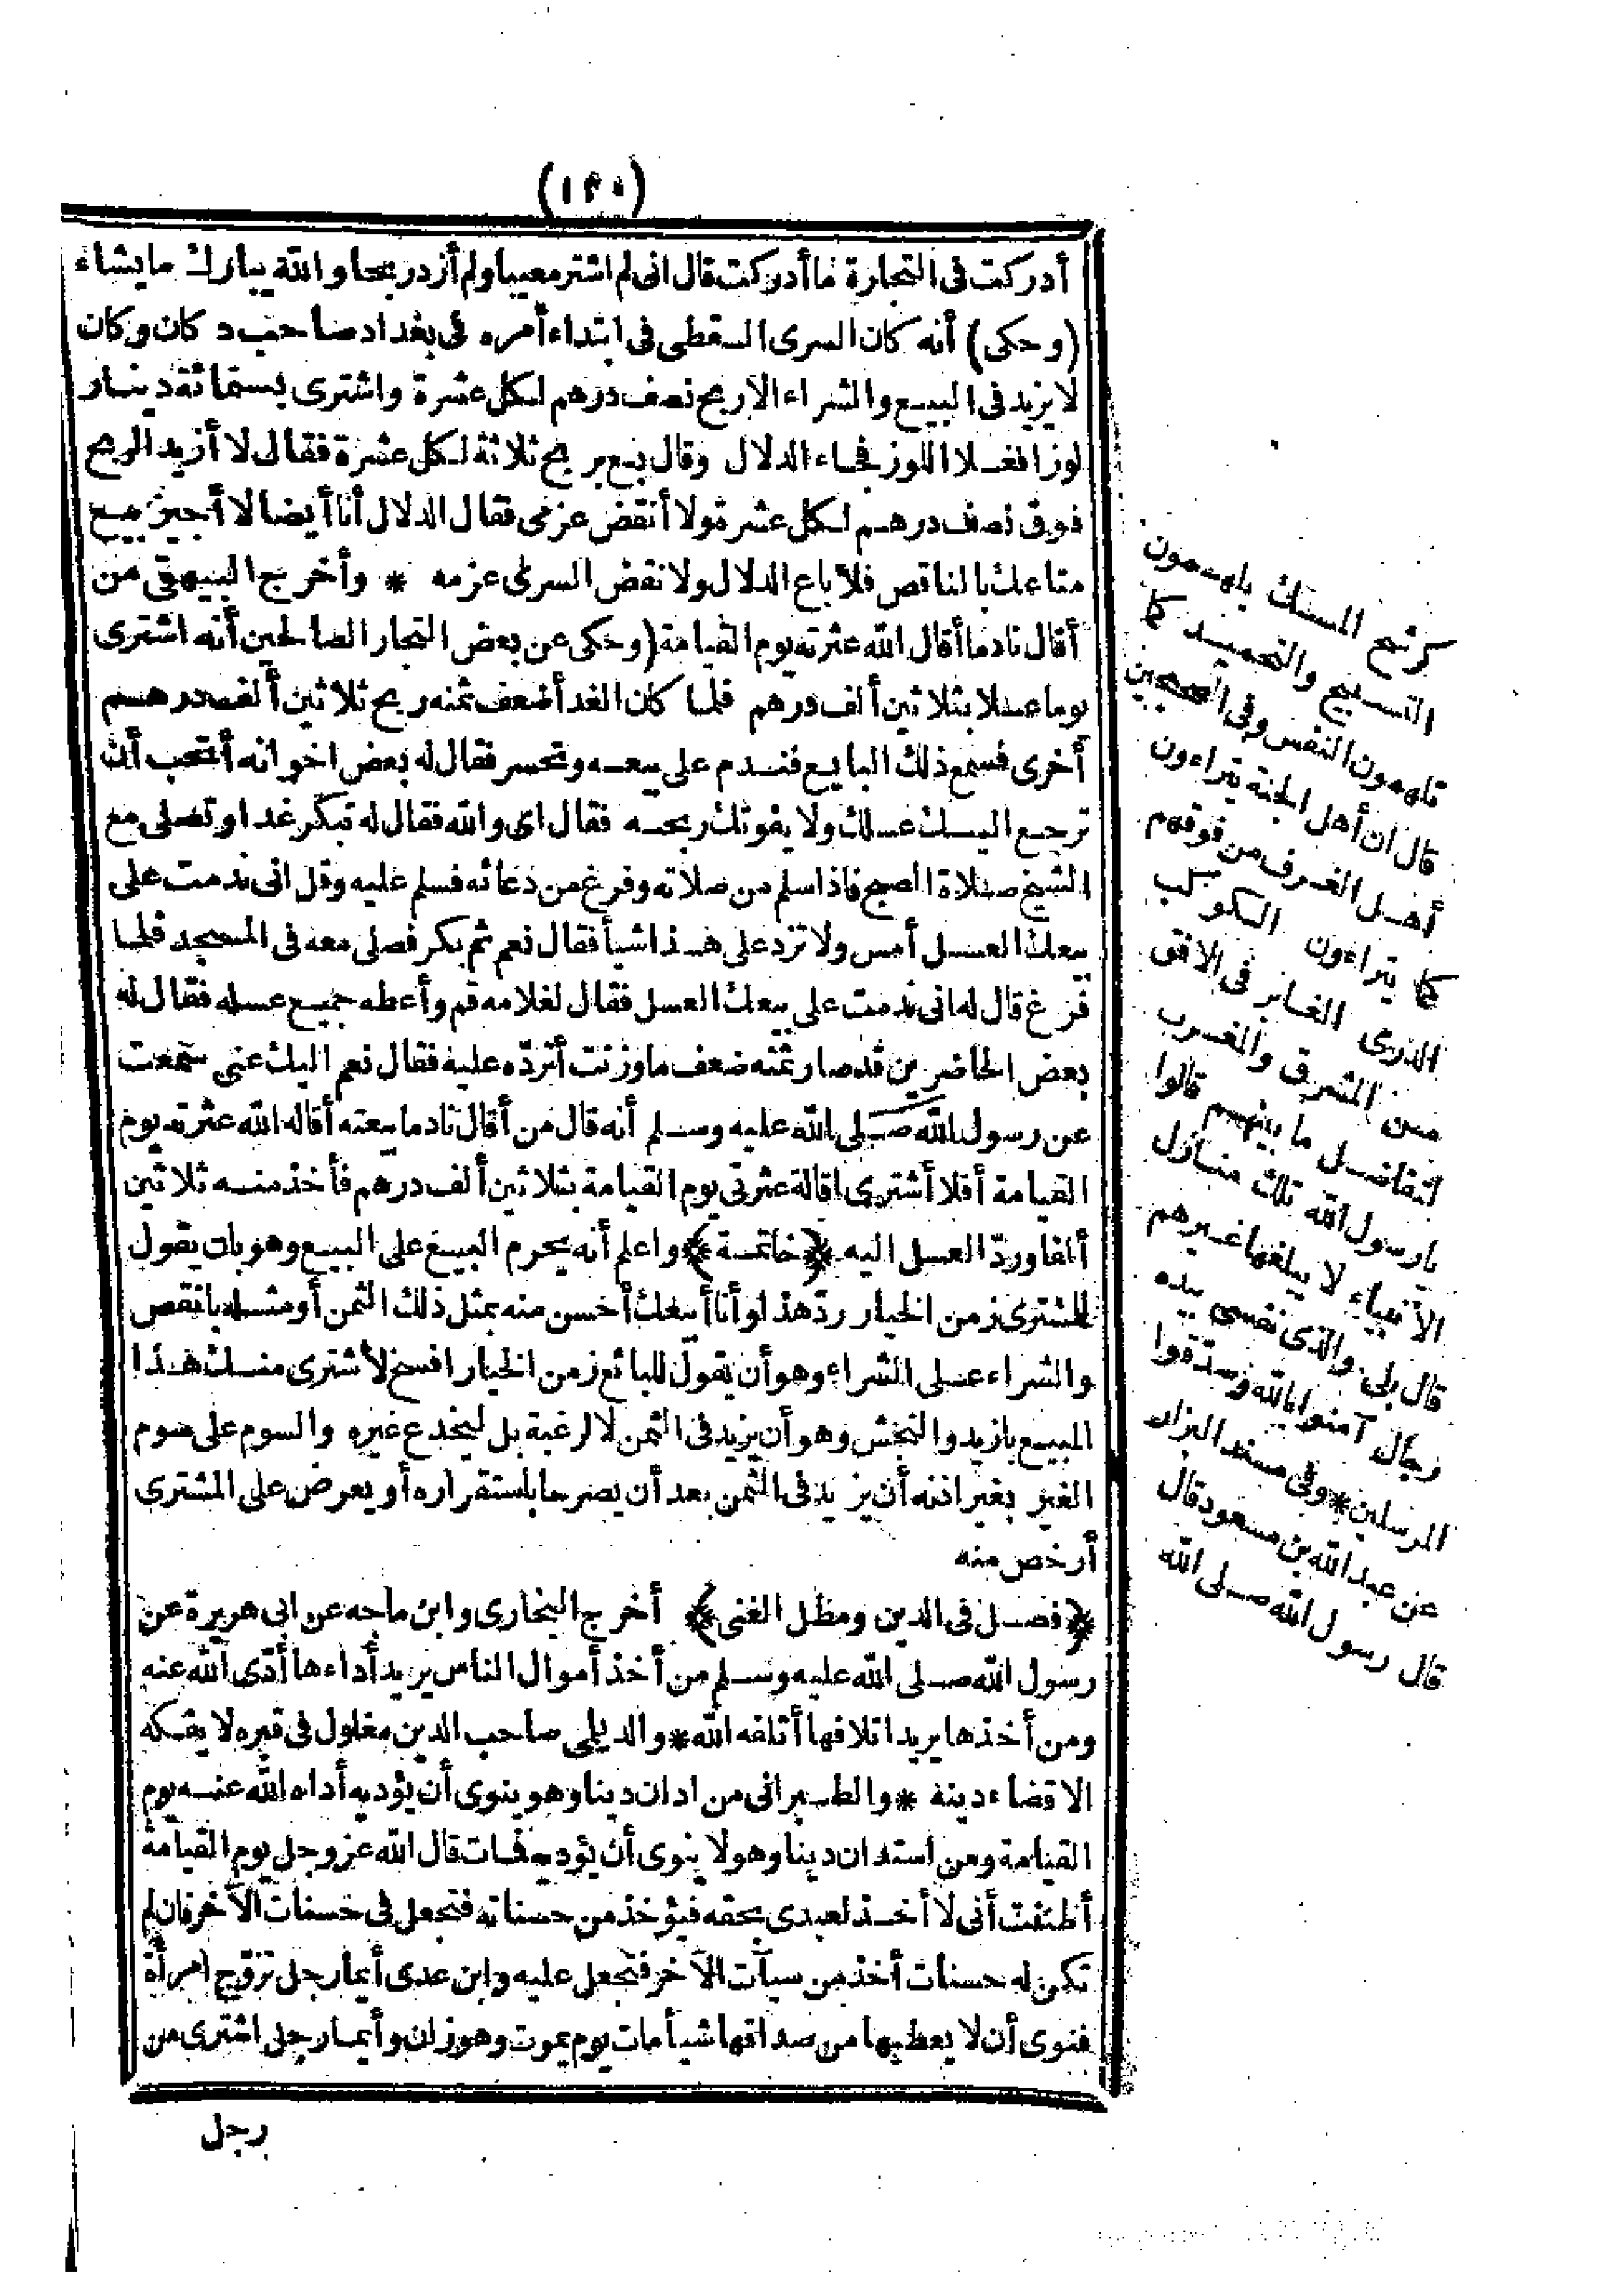 (١٢٠)
أدركت فى التجارة ما أدركت قال انى لم اشتر معيبا ولم أزد ربحا والله يبارك ما يشاء
(وحكى) أنه كان السرى السقطى فى ابتداء أمره فى بغداد صاحب دكان وكان
لا يزيد فى البيع والشراء الا ربح نصف درهم لكل عشرة واشترى بستمائة دينار
لوزا فغلا اللوز فجاء الدلال وقال بع بربح ثلاثة لكل عشرة فقال لا أزيد الربح
فوق نصف درهم لكل عشرة ولا أنقض عزمى فقال الدلال أنا أيضا لا أجيز بيع
متاعك بالناقص فلا باع الدلال ولا نقض السرى عزمه * وأخرج البيهقى من
أقال نادما أقال الله عثرته يوم القيامة (وحكى عن بعض التجار الصالحين أنه اشترى
يوما عسلا بثلاثين ألف درهم فلما كان الغد أضعف ثمنه ربح ثلاثين ألف درهم
أخرى فسمع ذلك البايع فندم على بيعه وتحسر فقال له بعض اخوانه أتحب أن
ترجع اليك عسلك ولا يفوتك ربحه فقال اى والله فقال له تبكر غدا وتصلى مع
الشيخ صلاة الصبح فاذا سلم من صلاته وفرغ من دعائه فسلم عليه وقل انى ندمت على
بيعك العسل أمس ولا تزد على هذا شيأ فقال نعم ثم بكر فصلى معه فى المسجد فلما
فرغ قال له انى ندمت على بيعك العسل فقال لغلامه قم وأعطه جميع عسله فقال له
بعض الحاضرين قد صار ثمنه ضعف ما وزنت أترده عليه فقال نعم اليك عنى سمعت
عن رسول الله صلى الله عليه وسلم أنه قال من أقال نادما بيعته أقاله الله عثرته يوم
القيامة أفلا أشترى اقالة عثرتى يوم القيامة بثلاثين ألف درهم فأخذ منه ثلاثين
ألفا ورد العسل اليه ﴿خاتمة﴾ واعلم أنه يحرم البيع على البيع وهو بان يقول
للمشترى زمن الخيار رد هذا وأنا أبيعك أحسن منه بمثل ذلك الثمن أو مثله بانقص
والشراء على الشراء وهو أن يقول للبائع زمن الخيار افسخ لأشترى منك هذا
المبيع بازيد والنجش وهو أن يزيد فى الثمن لا لرغبة بل ليخدع غيره والسوم على سوم
الغير بغير اذنه أن يزيد فى الثمن بعد أن يصرحا باستقراره أو يعرض على المشترى
أرخص منه
﴿فصل فى الدين ومطل الغنى﴾ أخرج البخارى وابن ماجه عن ابى هريرة عن
رسول الله صلى الله عليه وسلم من أخذ أموال الناس يريد أداءها أدى الله عنه
ومن أخذها يريد اتلافها أتلفه الله * والديلمى صاحب الدين مغلول فى قبره لا يفكه
الا قضاء دينة * والطبرانى من ادان دينا وهو ينوى أن يؤديه أداه الله عنه يوم
القيامة ومن استدان دينا وهو لا ينوى أن يؤديه فمات قال الله عز وجل يوم القيامة
أظننت أنى لا أخذ لعبدى بحقه فيؤخذ من حسناته فتجعل فى حسنات الآخر فان لم
تكن له حسنات أخذ من سيآت الآخر فتجعل عليه وابن عدى أيما رجل تزوج امرأة
فنوى أن لا يعطيها من صداقها شيأ مات يوم يموت وهو زان وأيما رجل اشترى من
رجل
كرشح المسك يلهمون
التسبيح والتحميد كما
تلهمون النفس وفى الصحيحين
قال ان أهل الجنة يتراءون
أهل الغرف من فوقهم
كما يتراءون الكوكب
الدرى الغابر فى الافق
من المشرق والمغرب
لتفاضل ما بينهم قالوا
يا رسول الله تلك منازل
الأنبياء لا يبلغها غيرهم
قال بلى والذى نفسى بيده
رجال آمنوا بالله وصدقوا
المرسلين * وفى مسند البزار
عن عبد الله بن مسعود قال
قال رسول الله صلى الله